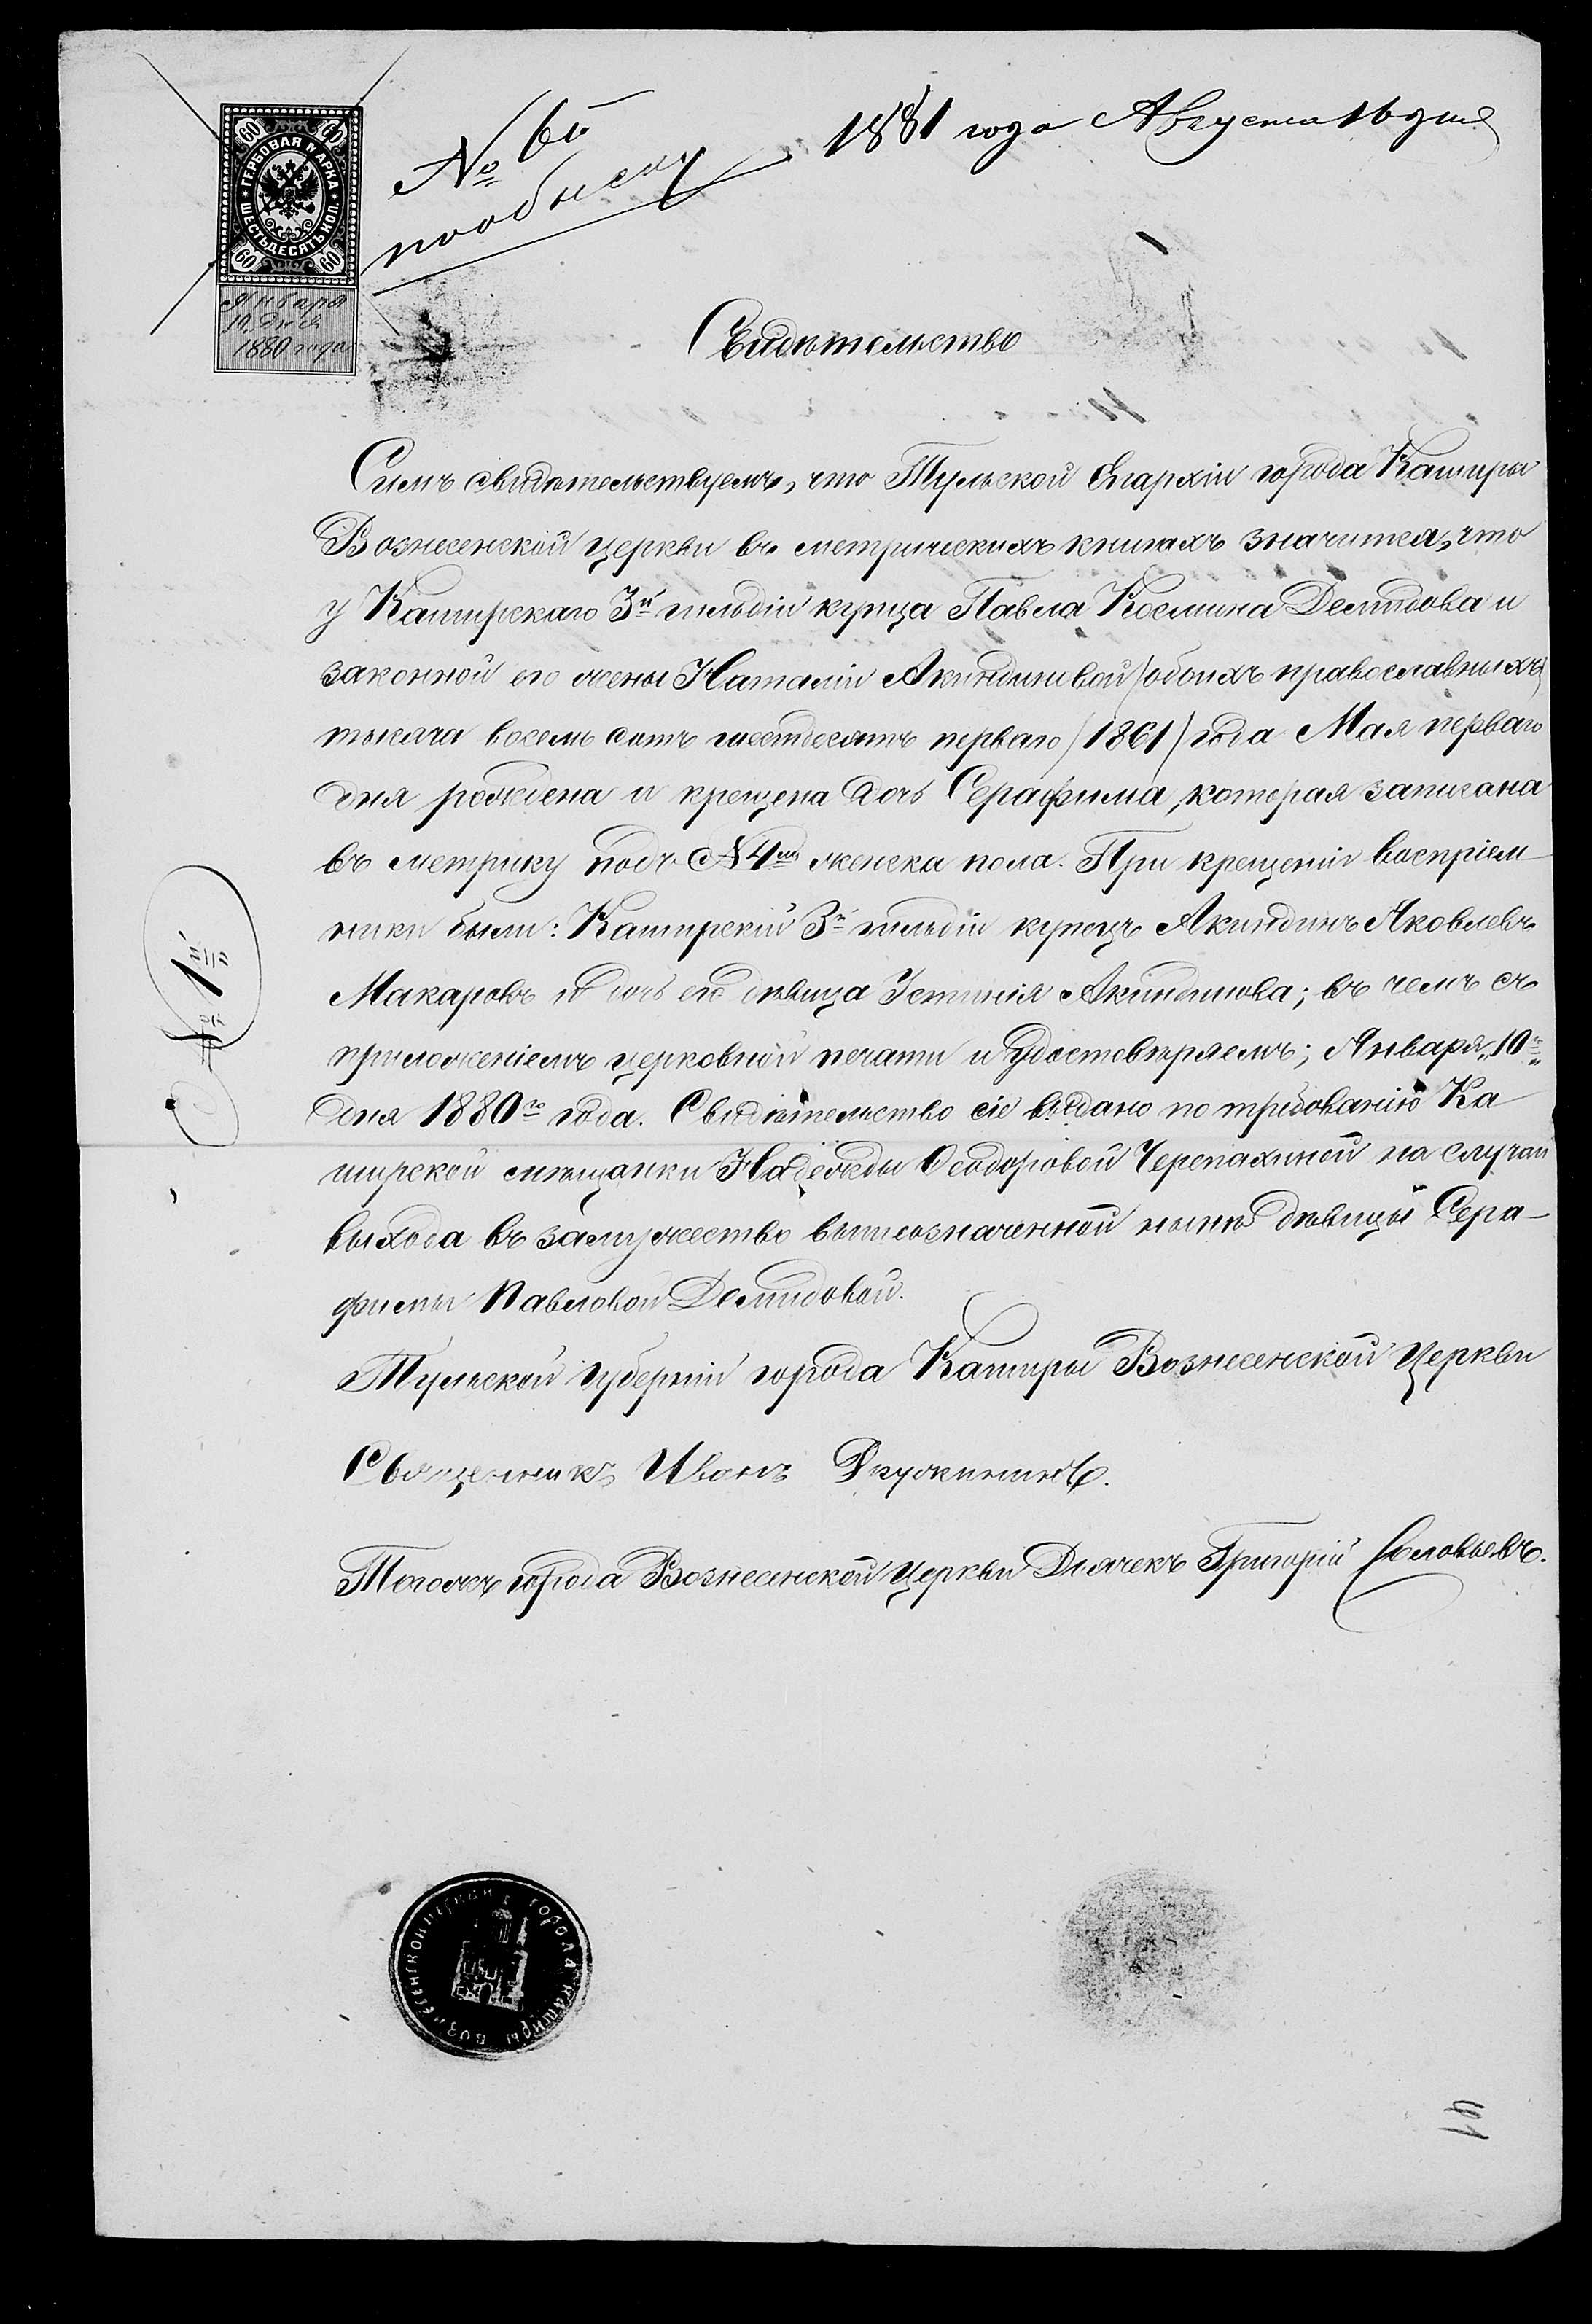 ГЕРБОВАЯ МАРКА
ШЕСТЬДЕСЯТЪ КОП.
60 60 60 60
Января
10 дня
1880 года
№ 60
по обыску
1881 года Августа 16 дня
Свидѣтельство
Симъ свидѣтельствуемъ, что Тульской Епархіи города Каширы
Вознесенской церкви въ метрическихъ книгахъ значится, что
у Каширскаго 3й гильдіи купца Павла Космина Демидова и
законной его жены Наталіи Акиндиновой (обоихъ православныхъ)
тысяча восемь сотъ шестдесятъ перваго (1861) года Мая перваго
дня рождена и крещена дочь Серафима, которая записана
въ метрику подъ №4мъ женска пола. При крещеніи воспріем-
ники были: Каширскій 3й гильдіи купецъ Акиндинъ Яковлевъ
Макаровъ и дочь его дѣвица Устинія Акиндинова; въ чемъ съ
приложеніемъ церковной печати и удостовѣряемъ; Января „10го„
дня 1880го года. Свидѣтельство сіе выдано по требованію Ка
ширской мѣщанки Надежды Ѳеодоровой Черепахиной на случай
выхода въ замужество вышеозначенной нынѣ дѣвицы Сера-
фимы Павловой Демидовой.
Тульской губерніи города Каширы Вознесенской Церкви
Священникъ Иванъ
Тогожъ города Вознесенской церкви Дьячекъ Григорій Соловьевъ.
№ 1й
ВОЗНЕСЕНСКОЙ ЦЕРКВИ ГОРОДА КАШИРЫ